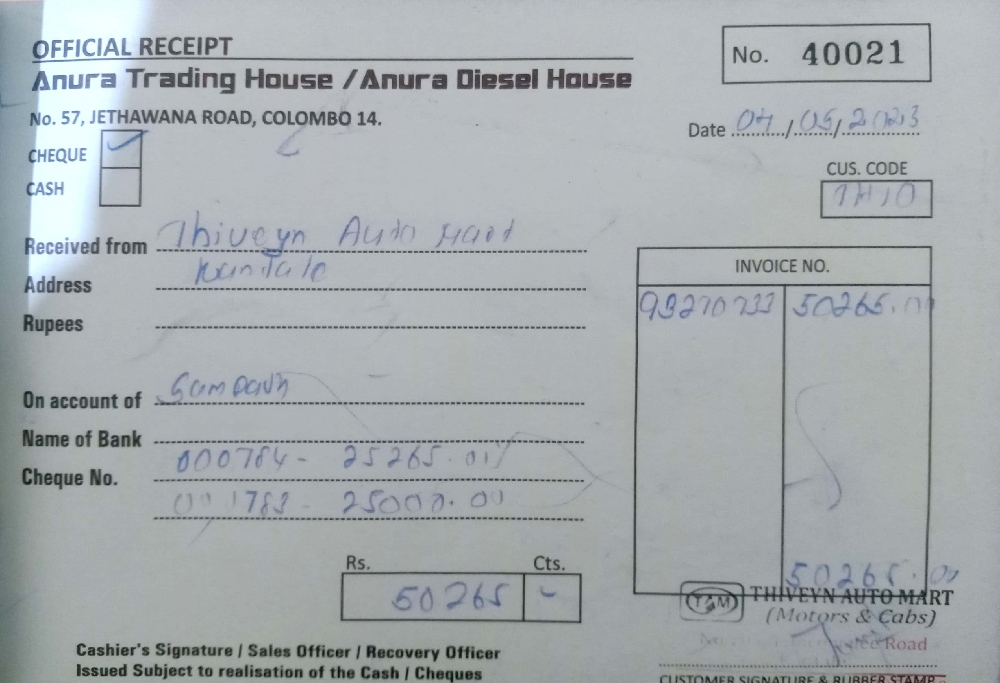 OFFICIAL RECEIPT
No. 40021
Anura Trading House / Anura Diesel House
No. 57, JETHAWANA ROAD, COLOMBO 14.
Date 04/05/2023
CHEQUE
CASH
CUS. CODE
TH10
Received from Thiveyn Auto Mart
Address Kantale
Rupees
INVOICE NO.
50265.00
On account of Sampath
Name of Bank
Cheque No. 000784 - 25265.01/
25000.00
50265.00
Rs. Cts.
50265 -
TAM THIVEYN AUTO MART
(Motors & Cabs)
Road
Cashier's Signature / Sales Officer / Recovery Officer
Issued Subject to realisation of the Cash / Cheques
CUSTOMER SIGNATURE & RUBBER STAMP